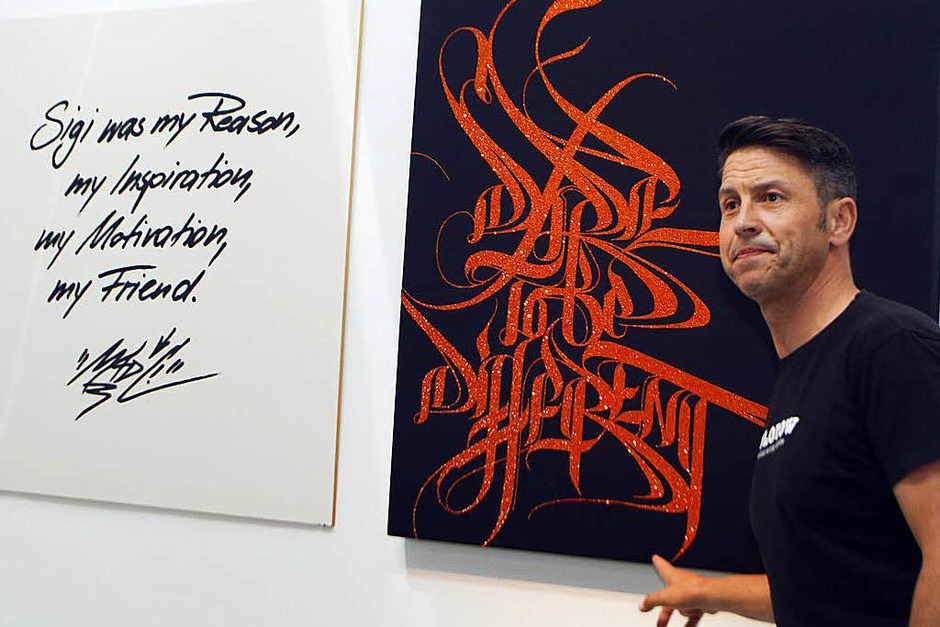 Sigi was my Reason,
my Inspiration,
my Motivation,
my Friend.
DARE
to Be
DIFFERENT